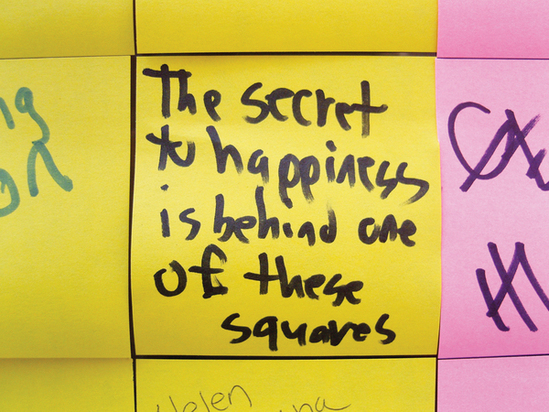 The secret
to happiness
is behind one
of these
squares
Helen